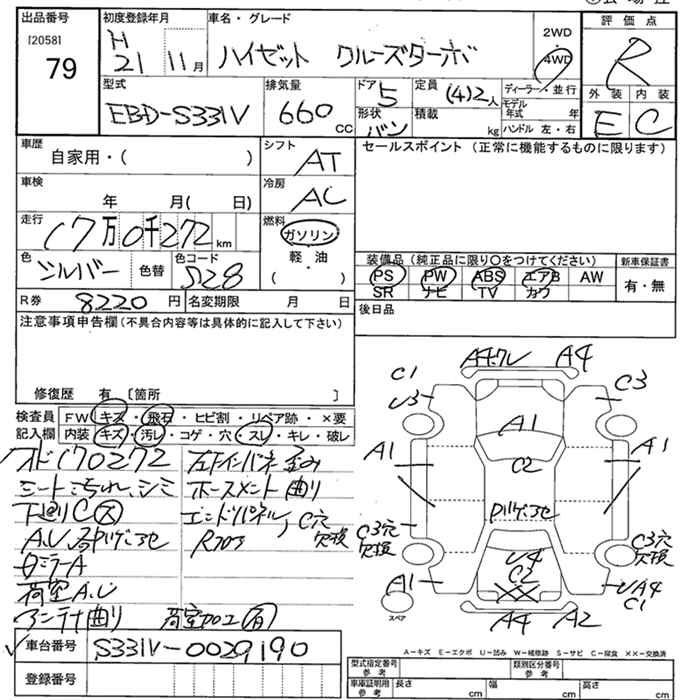 出品番号 初度登録年月 車名・グレード 評価点
[2058] H 2WD
79 21 11月 ハイゼット クルーズターボ 4WD R
型式 排気量 ドア 5 定員 (4)2人 ディーラー・並行 外装 内装
EBD-S331V 660cc 形状 バン 積載 kg モデル年式 年 E C
ハンドル 左・右
車歴 自家用・( ) シフト AT セールスポイント (正常に機能するものに限ります)
車検 年 月( 日) 冷房 AC
走行 17万0千272km 燃料 ガソリン
軽・油
( ・ )
色 シルバー 色替 色コード S28 装備品(純正品に限り○をつけてください) 新車保証書
PS PW ABS エアB AW 有・無
SR ナビ TV カワ
R券 8220円 名変期限 月 日 後日品
注意事項申告欄(不具合内容等は具体的に記入して下さい)
修復歴 有 〔箇所 〕
検査員 FW キズ・飛石・ヒビ割・リペア跡・×要
記入欄 内装 キズ・汚レ・コゲ・穴・スレ・キレ・破レ
オド170272
シート汚れ、シミ ホースメント曲り
下廻りC大 エンドパネル、C穴欠損
荷室A.U
アンテナ曲り 荷室加工有
A4ワレ A4
C1 C3
U3
A1
A1 A1
C2
C3穴欠損 C3穴欠損
U4
C2
A1 UA4
C1
XX
A4 A2
スペア
車台番号 S331V-0029190
登録番号
A-キズ E-エクボ U-凹み W-補修跡 S-サビ C-腐食 XX-交換済
型式指定番号 参考 類別区分番号 参考
車庫証明用 参考 長さ cm 幅 cm 高さ cm